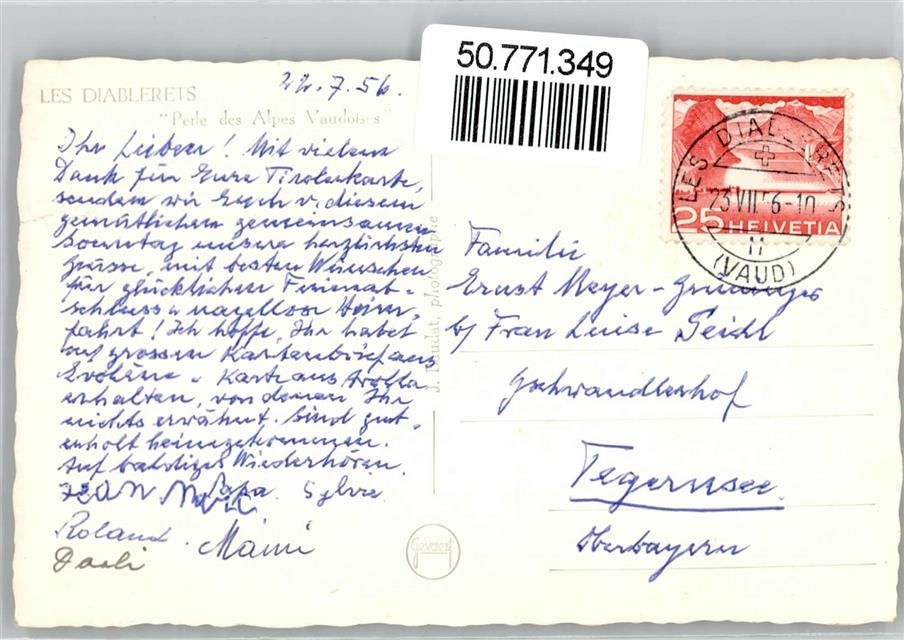 50.771.349
LES DIABLERETS
"Perle des Alpes Vaudoises"
22.7.56.
Ihr Lieben! Mit vielem
Dank für Eure Tirolerkarte,
senden wir Euch v. diesem
gemütlichen gemeinsamen
Sonntag unsere herzlichsten
Grüsse, mit besten Wünschen
für glücklichen Ferienab-
schluss u. nagellose Heim-
fahrt! Ich hoffe, Ihr habet
auf grossen Kartenbrief aus
Evolène u. Karte aus Arolla
erhalten, von denen Ihr
nichts erwähnt. Sind gut
erholt heimgekommen.
Auf baldiges Wiederhören.
JEAN Papa. Sylvie
Roland. Mami
J. Baudat, photographe
Gevaert
LES DIABLERETS
23 VII 56-10
(VAUD)
25 HELVETIA
Familie
Ernst Meyer-
b/ Frau Luise Seidl
Gschwandlerhof
Tegernsee
Oberbayern